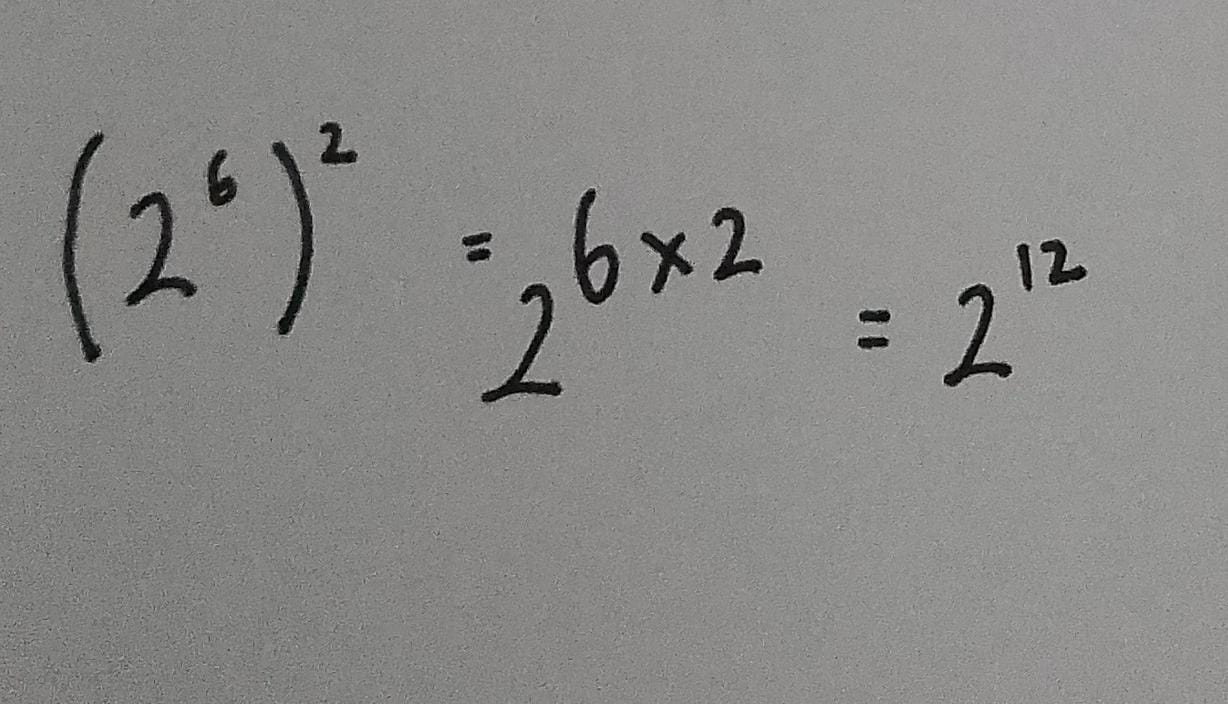 (2⁶)² = 2⁶ˣ² = 2¹²